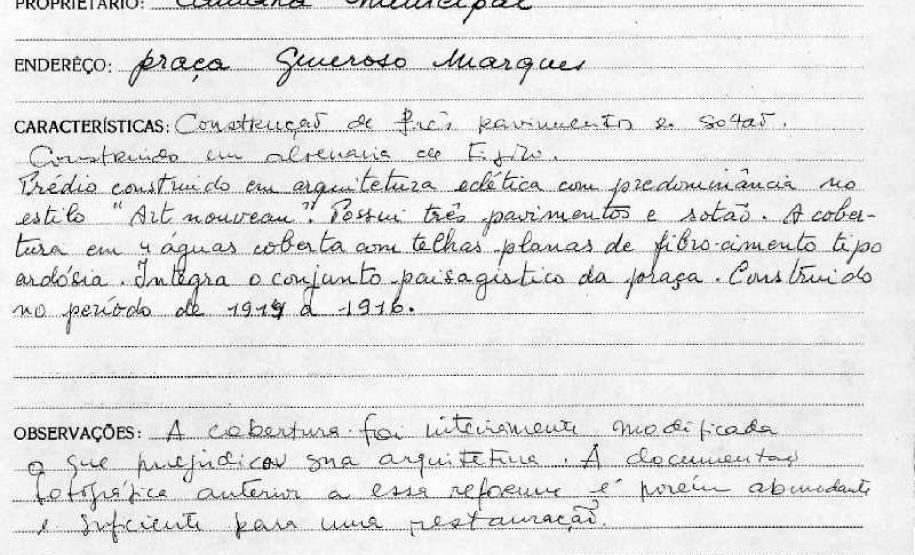 PROPRIETÁRIO: Municipal
ENDERÊÇO: praça Generoso Marques
CARACTERÍSTICAS: Construção de três pavimentos e sotaõ.
Construido em alvenaria de tijolo.
Prédio construido em arquitetura eclética com predominância no
estilo "Art nouveau". Possui três pavimentos e sotaõ. A cober-
tura em 4 águas coberta com telhas planas de fibro-cimento tipo
ardósia. Integra o conjunto paisagistico da praça. Construido
no período de 1914 a 1916.
OBSERVAÇÕES: A cobertura foi inteiramente modificada
o que prejudicou sua arquitetura. A documentaç
fotográfica anterior a essa reforma é porém abundante
e suficiente para uma restauração.